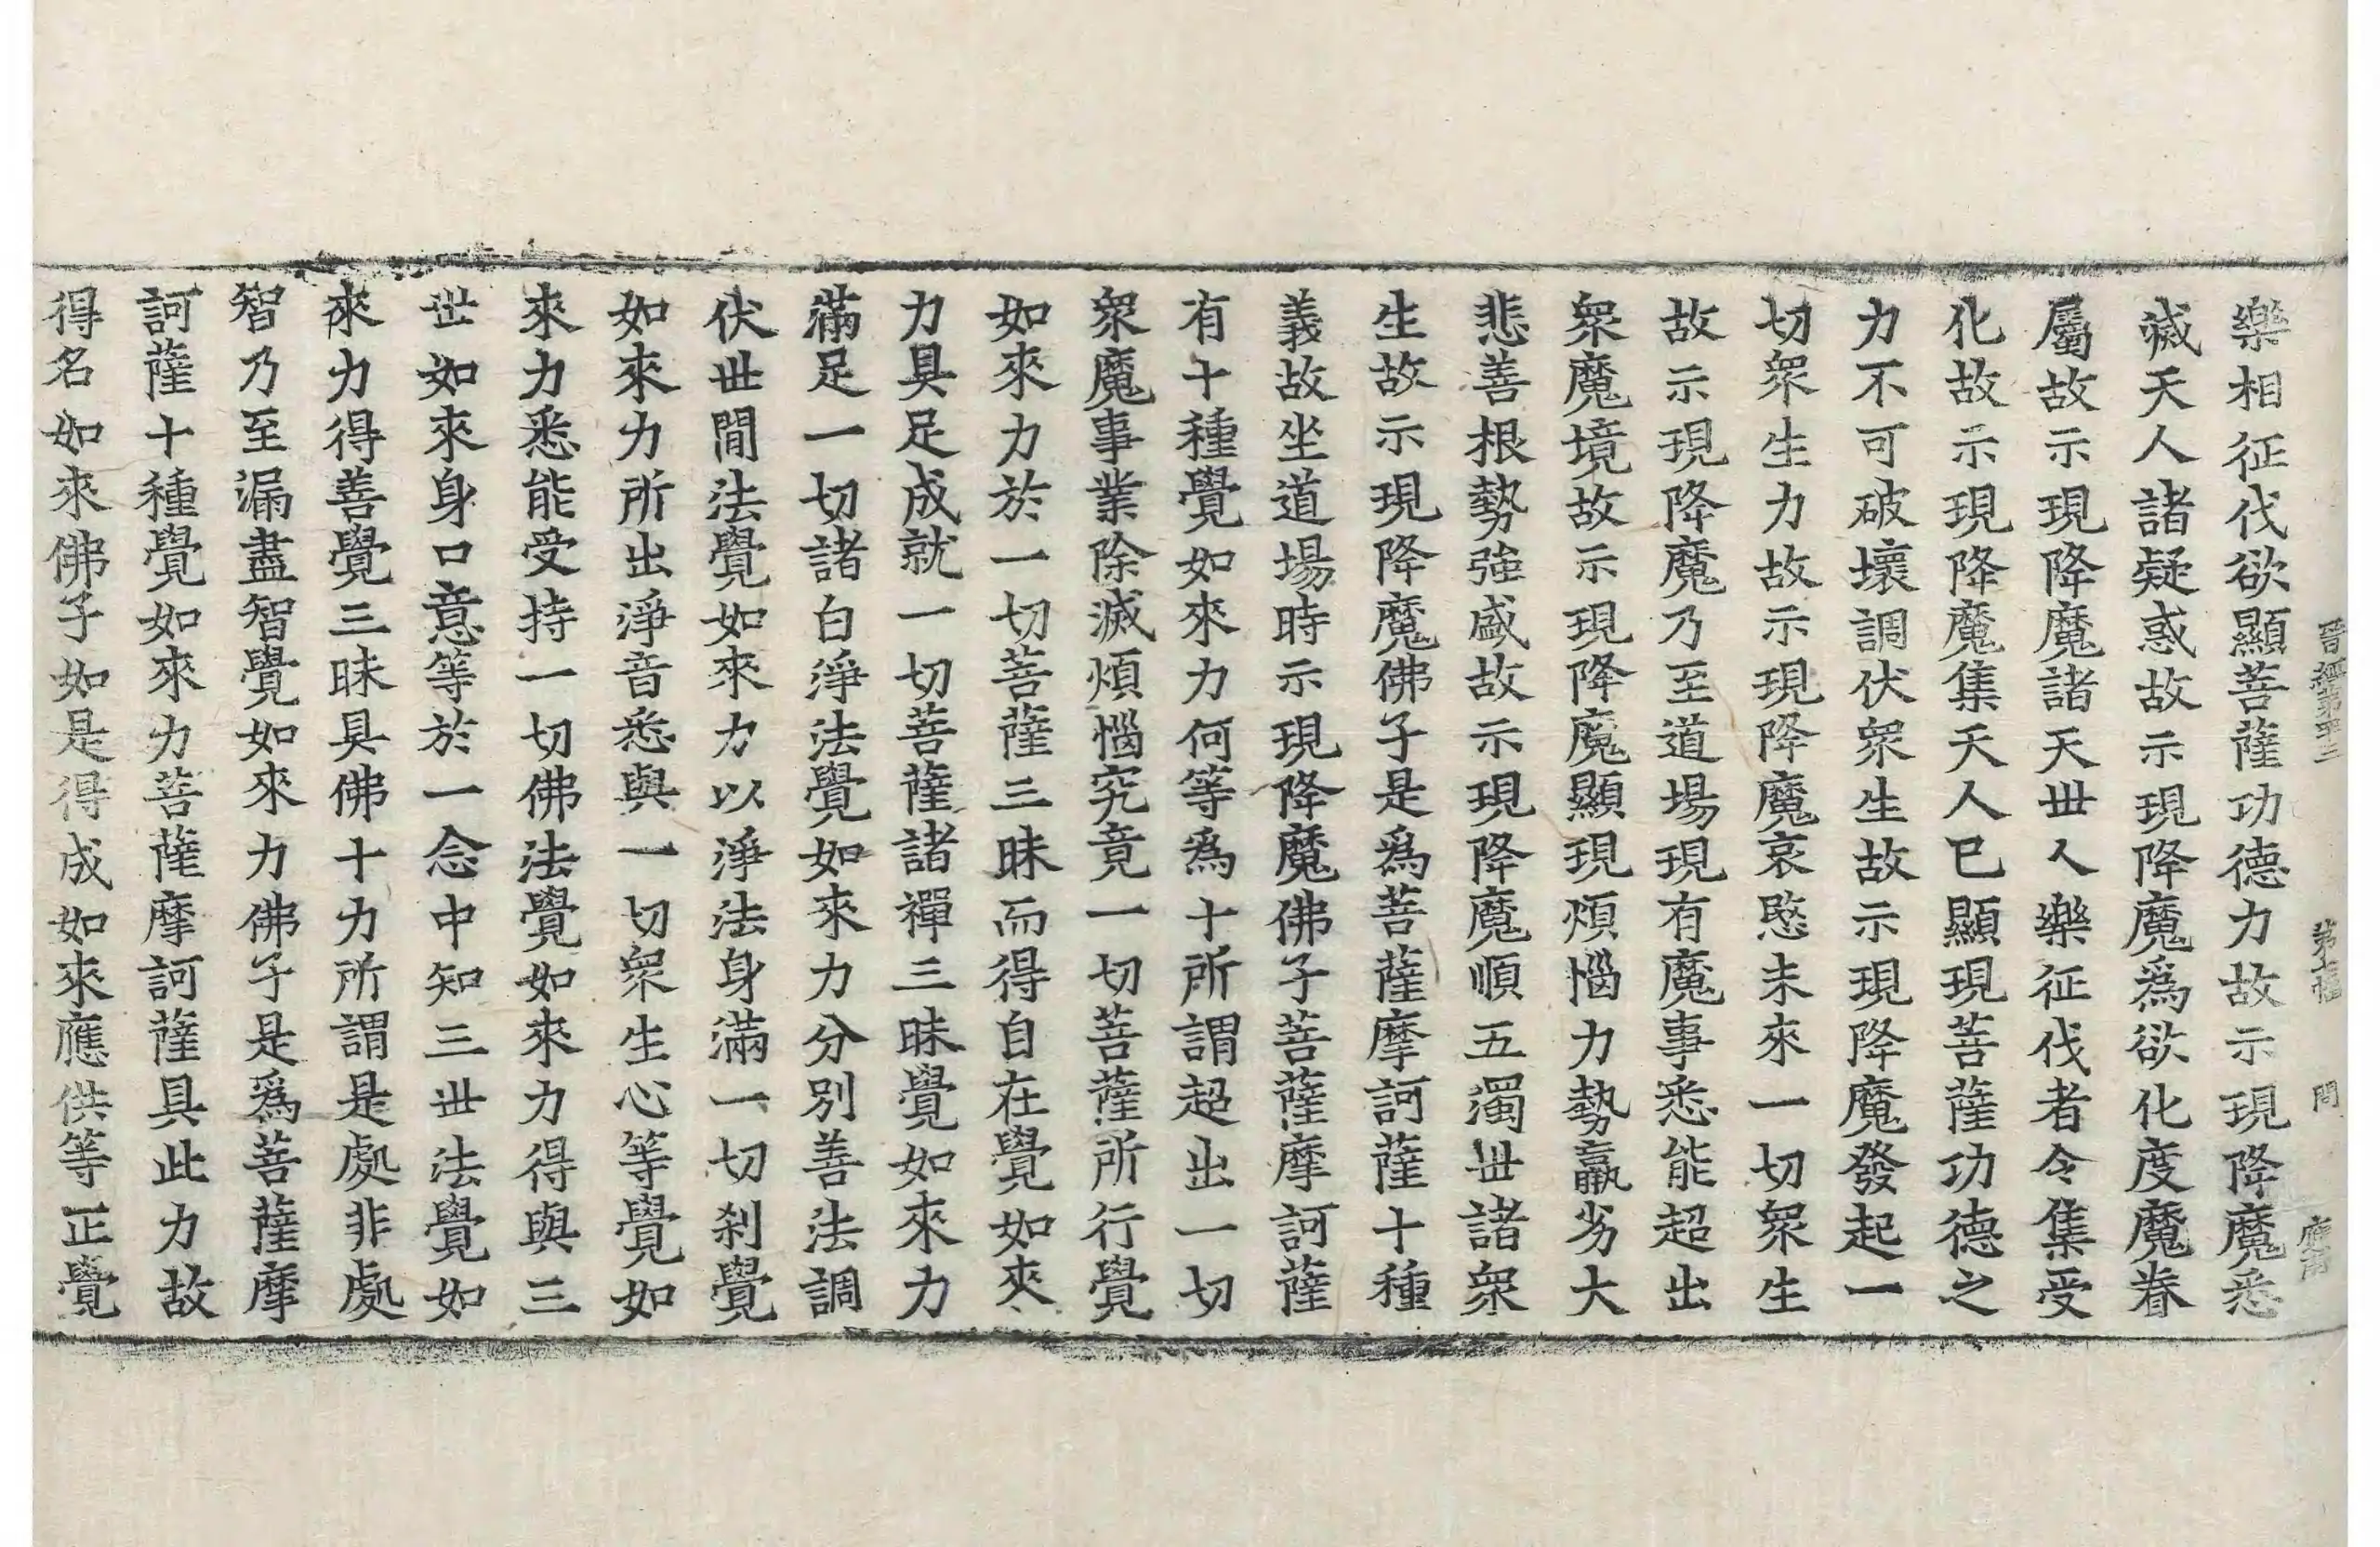 晉經第四三 第十幅 問
樂相征伐欲顯菩薩功德力故示現降魔悉
滅天人諸疑惑故示現降魔爲欲化度魔眷
屬故示現降魔諸天世人樂征伐者令集受
化故示現降魔集天人已顯現菩薩功德之
力不可破壞調伏衆生故示現降魔發起一
切衆生力故示現降魔哀愍未來一切衆生
故示現降魔乃至道場現有魔事悉能超出
衆魔境故示現降魔顯現煩惱力勢羸劣大
悲善根勢強盛故示現降魔順五濁世諸衆
生故示現降魔佛子是爲菩薩摩訶薩十種
義故坐道場時示現降魔佛子菩薩摩訶薩
有十種覺如來力何等爲十所謂超出一切
衆魔事業除滅煩惱究竟一切菩薩所行覺
如來力於一切菩薩三昧而得自在覺如來
力具足成就一切菩薩諸禪三昧覺如來力
滿足一切諸白淨法覺如來力分別善法調
伏世間法覺如來力以淨法身滿一切刹覺
如來力所出淨音悉與一切衆生心等覺如
來力悉能受持一切佛法覺如來力得與三
世如來身口意等於一念中知三世法覺如
來力得善覺三昧具佛十力所謂是處非處
智乃至漏盡智覺如來力佛子是爲菩薩摩
訶薩十種覺如來力菩薩摩訶薩具此力故
得名如來佛子如是得成如來應供等正覺